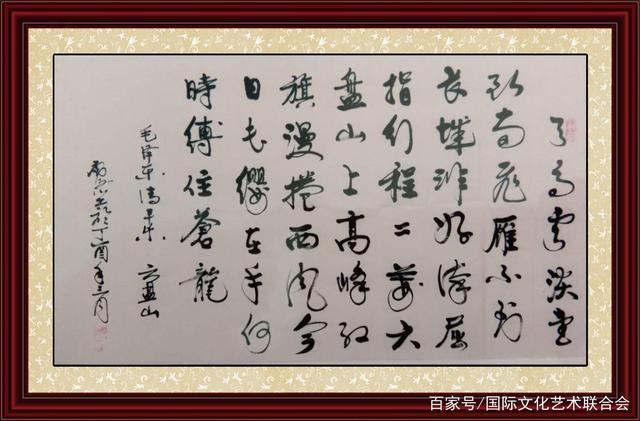 天高雲淡望
断南飞雁不到
长城非好漢屈
指行程二萬六
盘山上高峰红
旗漫捲西风今
日长缨在手何
時縛住蒼龍
毛泽东清平乐 六盘山
於丁酉年三月
百家号/国际文化艺术联合会